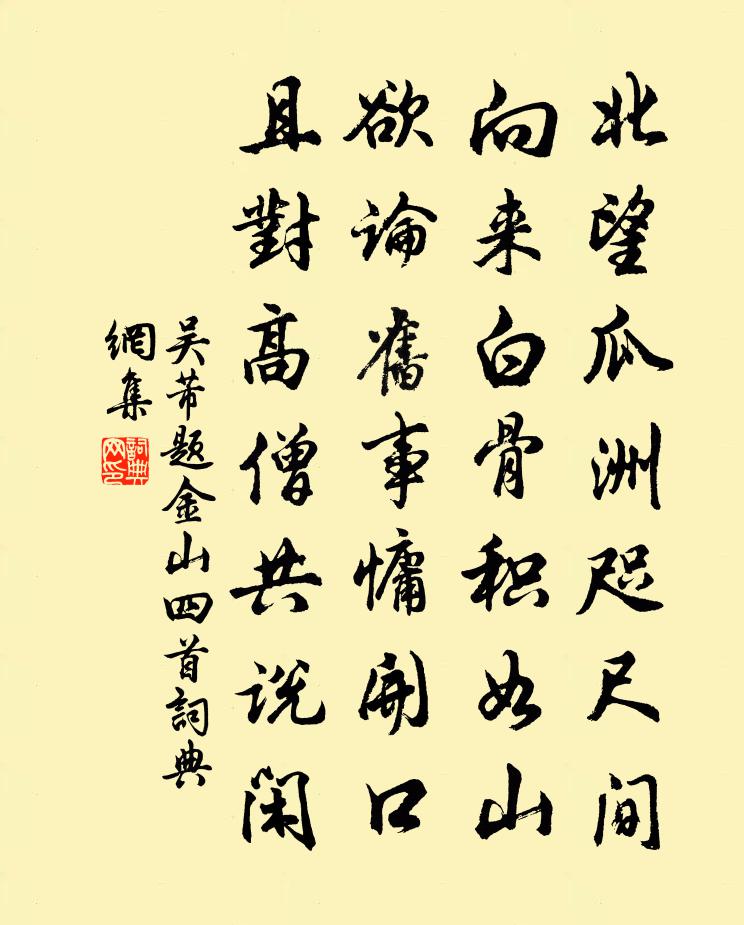 北望瓜洲咫尺间
向来白骨积如山
欲论舊事慵開口
且對高僧共说闲
吴芾题金山四首詞典
網集
詞典網印